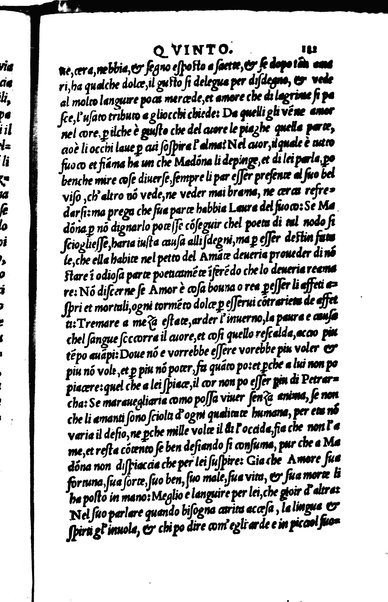 QVINTO. 181
ne, cera, nebbia, & segno esposto a saette, & se dopo tāti ama
ri, ha qualche dolce, il gusto si delegua per disdegno, & vede
al molto languire poca mercede, et amore che di lagrime si pa
sce, l'usato tributo a gliocchi chiede: Da quelli gli vēne amor
nel core, p̄ ilche è giusto che del cuore le piaghe quella parte,
cioè li occhi laue p̄ cui sospira l'alma: Nel cuor, il quale è tutto
fuoco et fiāma ha un che Madōna li depinge, et di lei parla, p̄o
benche mire cose diuerse, sempre li par esser presente al suo bel
viso, ch'altro nō vede, ne veder mai brama, ne cerca refre-
darsi: ma prega che sua parte habbia Laura del fuoco: Se Ma
dōna p̄ nō dignarlo potesse cōseguir chel poeta di tal nodo si
sciogliesse, haria iusta causa alli sdegni, ma p̄ esser destin fata
le, che ella habite nel petto del Amāte deueria proueder di nō
stare ī odiosa parte poeticamēte īferēdo che lo deueria reama
re: Nō discerne se Amor è cosa bouna o rea p̄ esser li affeti a-
spri et mortali, ogni tormēto dolce p̄ esserui cōtrarieta de affet
ti: Tremare a meza estate, arder l'inuerno, la paura e causa
chel sangue sccorra il cuore, et cosi quello rescalda, accio piu
tēpo auāpi: Doue nō e vorrebbe essere vorebbe piu voler &
piu nō volt, et p̄ piu nō poter, fa quāto po: et p̄che a lui non po
piacere: quel che a lei spiace, il cor non po esser piu di Petrar-
cha: Se marauegliaria como possa viuer senza anima, se non
che li amanti sono sciolti d'ogni qualitate humana, per età nō
varia il desio, ne p̄che mille volte il dì l'occida, fia che non l'a
me, et resta cōtento se ben desiando si consuma, pur che a Ma
dōna non dispiaccia che per lei suspire: Gia che Amore sua
fortuna, sua sorte, suo ben, suo male, sua vita, & sua morte li
ha posto in mano: Meglio e languire per lei, che gioir d'altra:
Nel suo parlare quando bisogna carita accesa, la lingua &
spirti gl' inuola, & chi po dire com'egli arde e in picciol fuo-